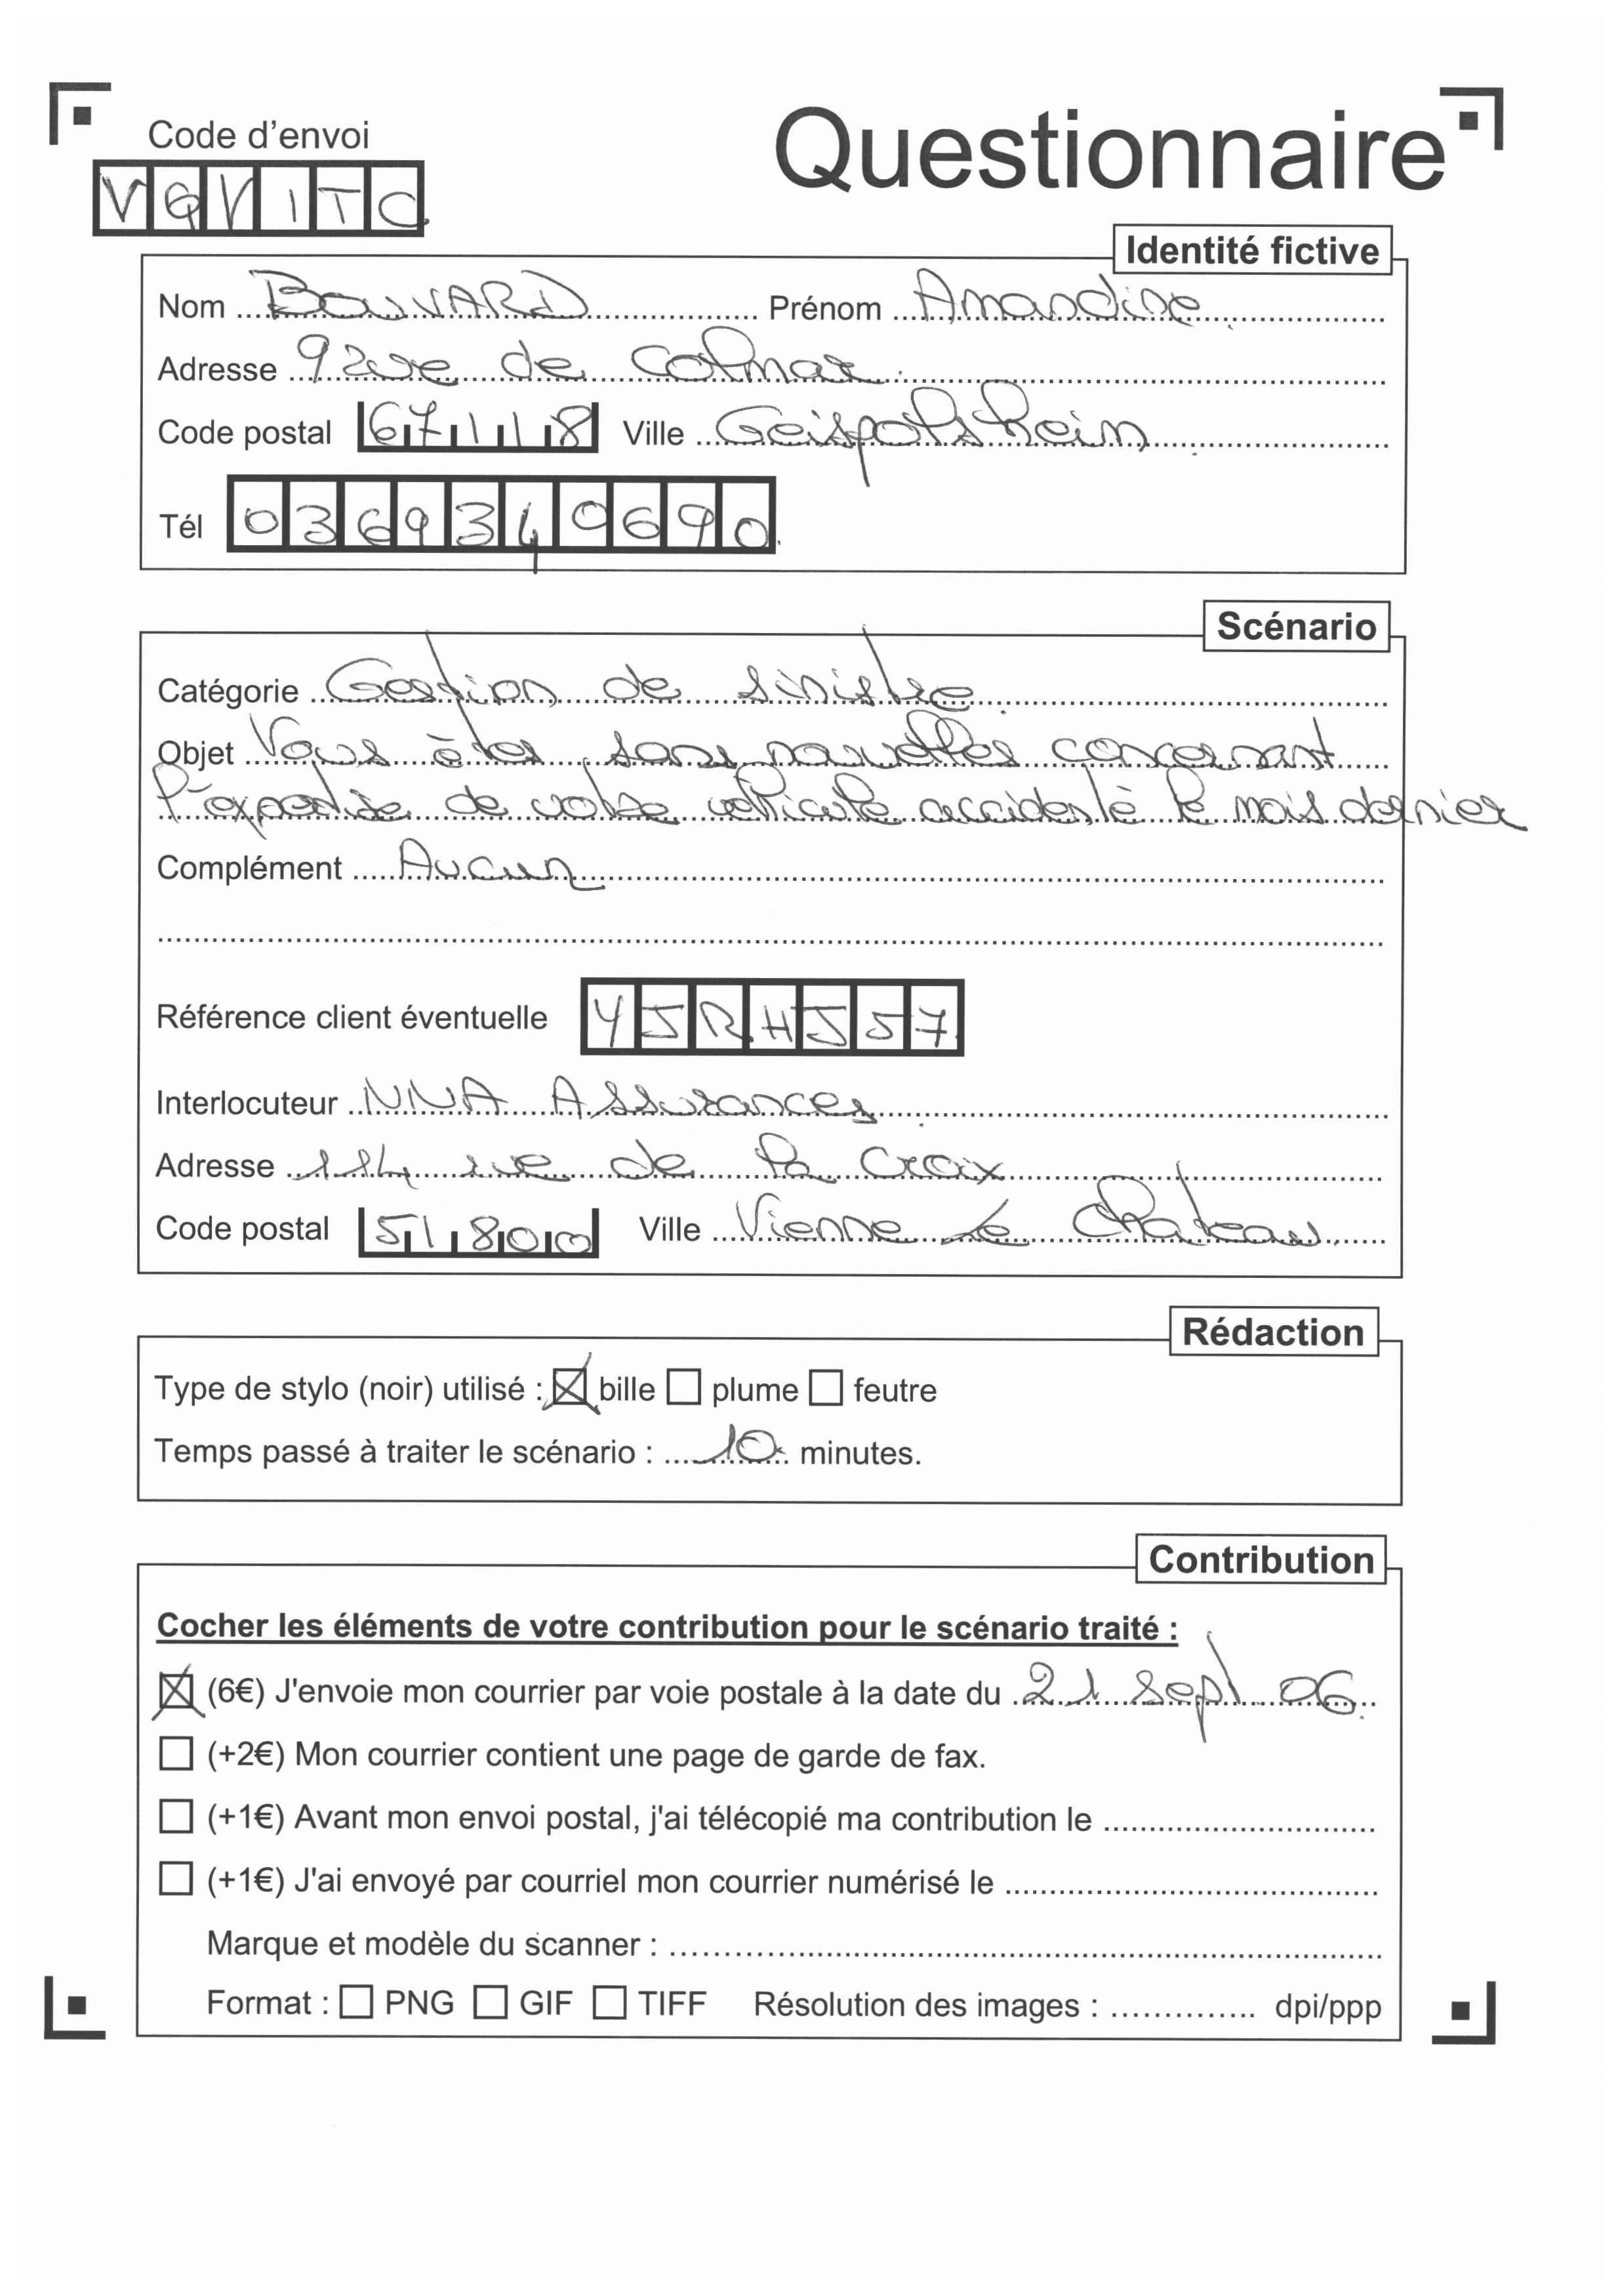 Code d'envoi
Questionnaire
VQVITC
Identité fictive
Nom BOUVARD Prénom Amandine
Adresse 9 rue de Colmar
Code postal 67118 Ville Geispolsheim
Tél 0369340690
Scénario
Catégorie Gestion de sinistre
Objet Vous êtes sans nouvelles concernant
l'expertise de votre véhicule accidenté le mois dernier
Complément Aucun
Référence client éventuelle YJRHJ57
Interlocuteur NNA Assurances
Adresse 114 rue de la Croix
Code postal 51800 Ville Vienne Le Chateau
Rédaction
Type de stylo (noir) utilisé : bille plume feutre
Temps passé à traiter le scénario : 10 minutes.
Contribution
Cocher les éléments de votre contribution pour le scénario traité :
(6€) J'envoie mon courrier par voie postale à la date du 21 sept 06
(+2€) Mon courrier contient une page de garde de fax.
(+1€) Avant mon envoi postal, j'ai télécopié ma contribution le
(+1€) J'ai envoyé par courriel mon courrier numérisé le
Marque et modèle du scanner :
Format : PNG GIF TIFF Résolution des images : dpi/ppp